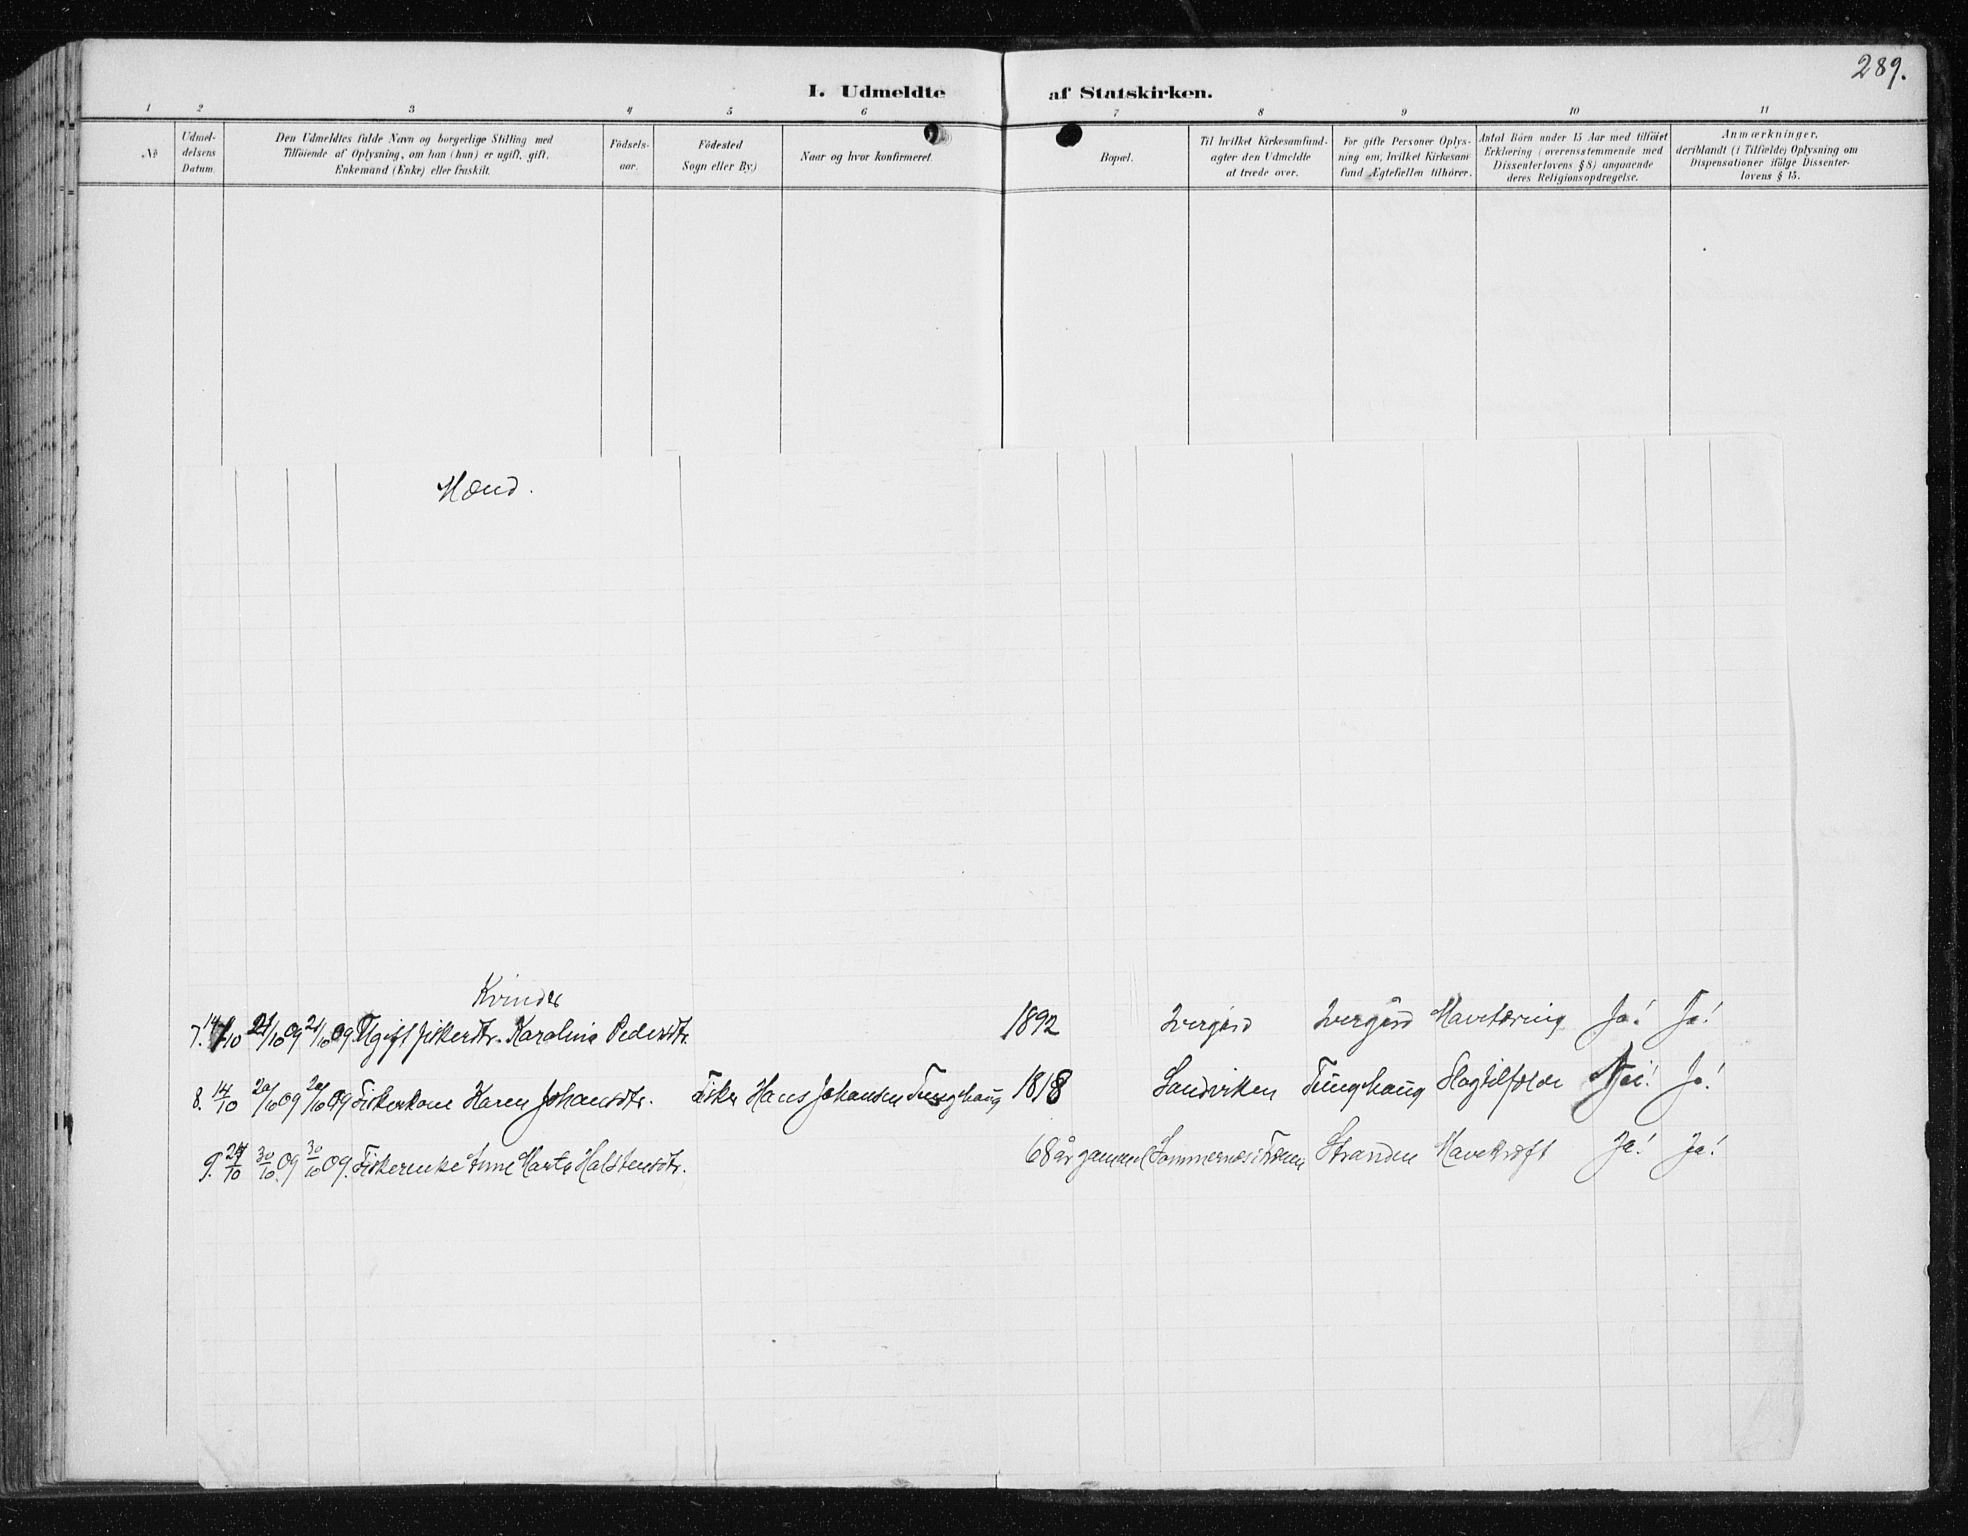 289.
I. Udmeldte af Statskirken.
1 2 3 4 5 6 7 8 9 10 11
No
Udmel-
delsens
Datum
Den Udmeldtes fulde Navn og borgerlige Stilling med
Tilföiende af Oplysning, om han (hun) er ugift, gift,
Enkemand (Enke) eller fraskilt.
Födsels-
aar.
Födested
Sogn eller By)
Naar og hvor konfirmeret
Bopæl.
Til hvilket Kirkesamfund
agter den Udmeldte
at træde over.
For gifte Personer Oplys-
ning om, hvilket Kirkesam
fund Ægtefællen tilhörer.
Antal Börn under 15 Aar med tilföiet
Erklæring (overensstemmende med
Dissenterlovens § 8) angaaende
deres Religionsopdragelse.
Anmærkninger,
deriblandt (i Tilfælde) Oplysning om
Dispensationer ifölge Dissenter-
lovens § 15.
Mænd.
Kvinder
7. 14/10 21/10 09 21/10 09 Ugift fiskerdtr. Karoline Pedersdtr. 1892 Ivergård Ivergård Mavetæring Ja! Ja!
8. 14/10 20/10 09 20/10 09 Fiskerkone Karen Johansdtr. Fisker Hans Johansen Tunghaug 1818 Sandviken Tunghaug Slagtilfælde Nei! Ja!
9. 24/10 30/10 09 30/10 09. Fiskerenke Anne Marta Halstensdtr. 68 år gammel Sommernæs i Stranden Mavekræft Ja! Ja!